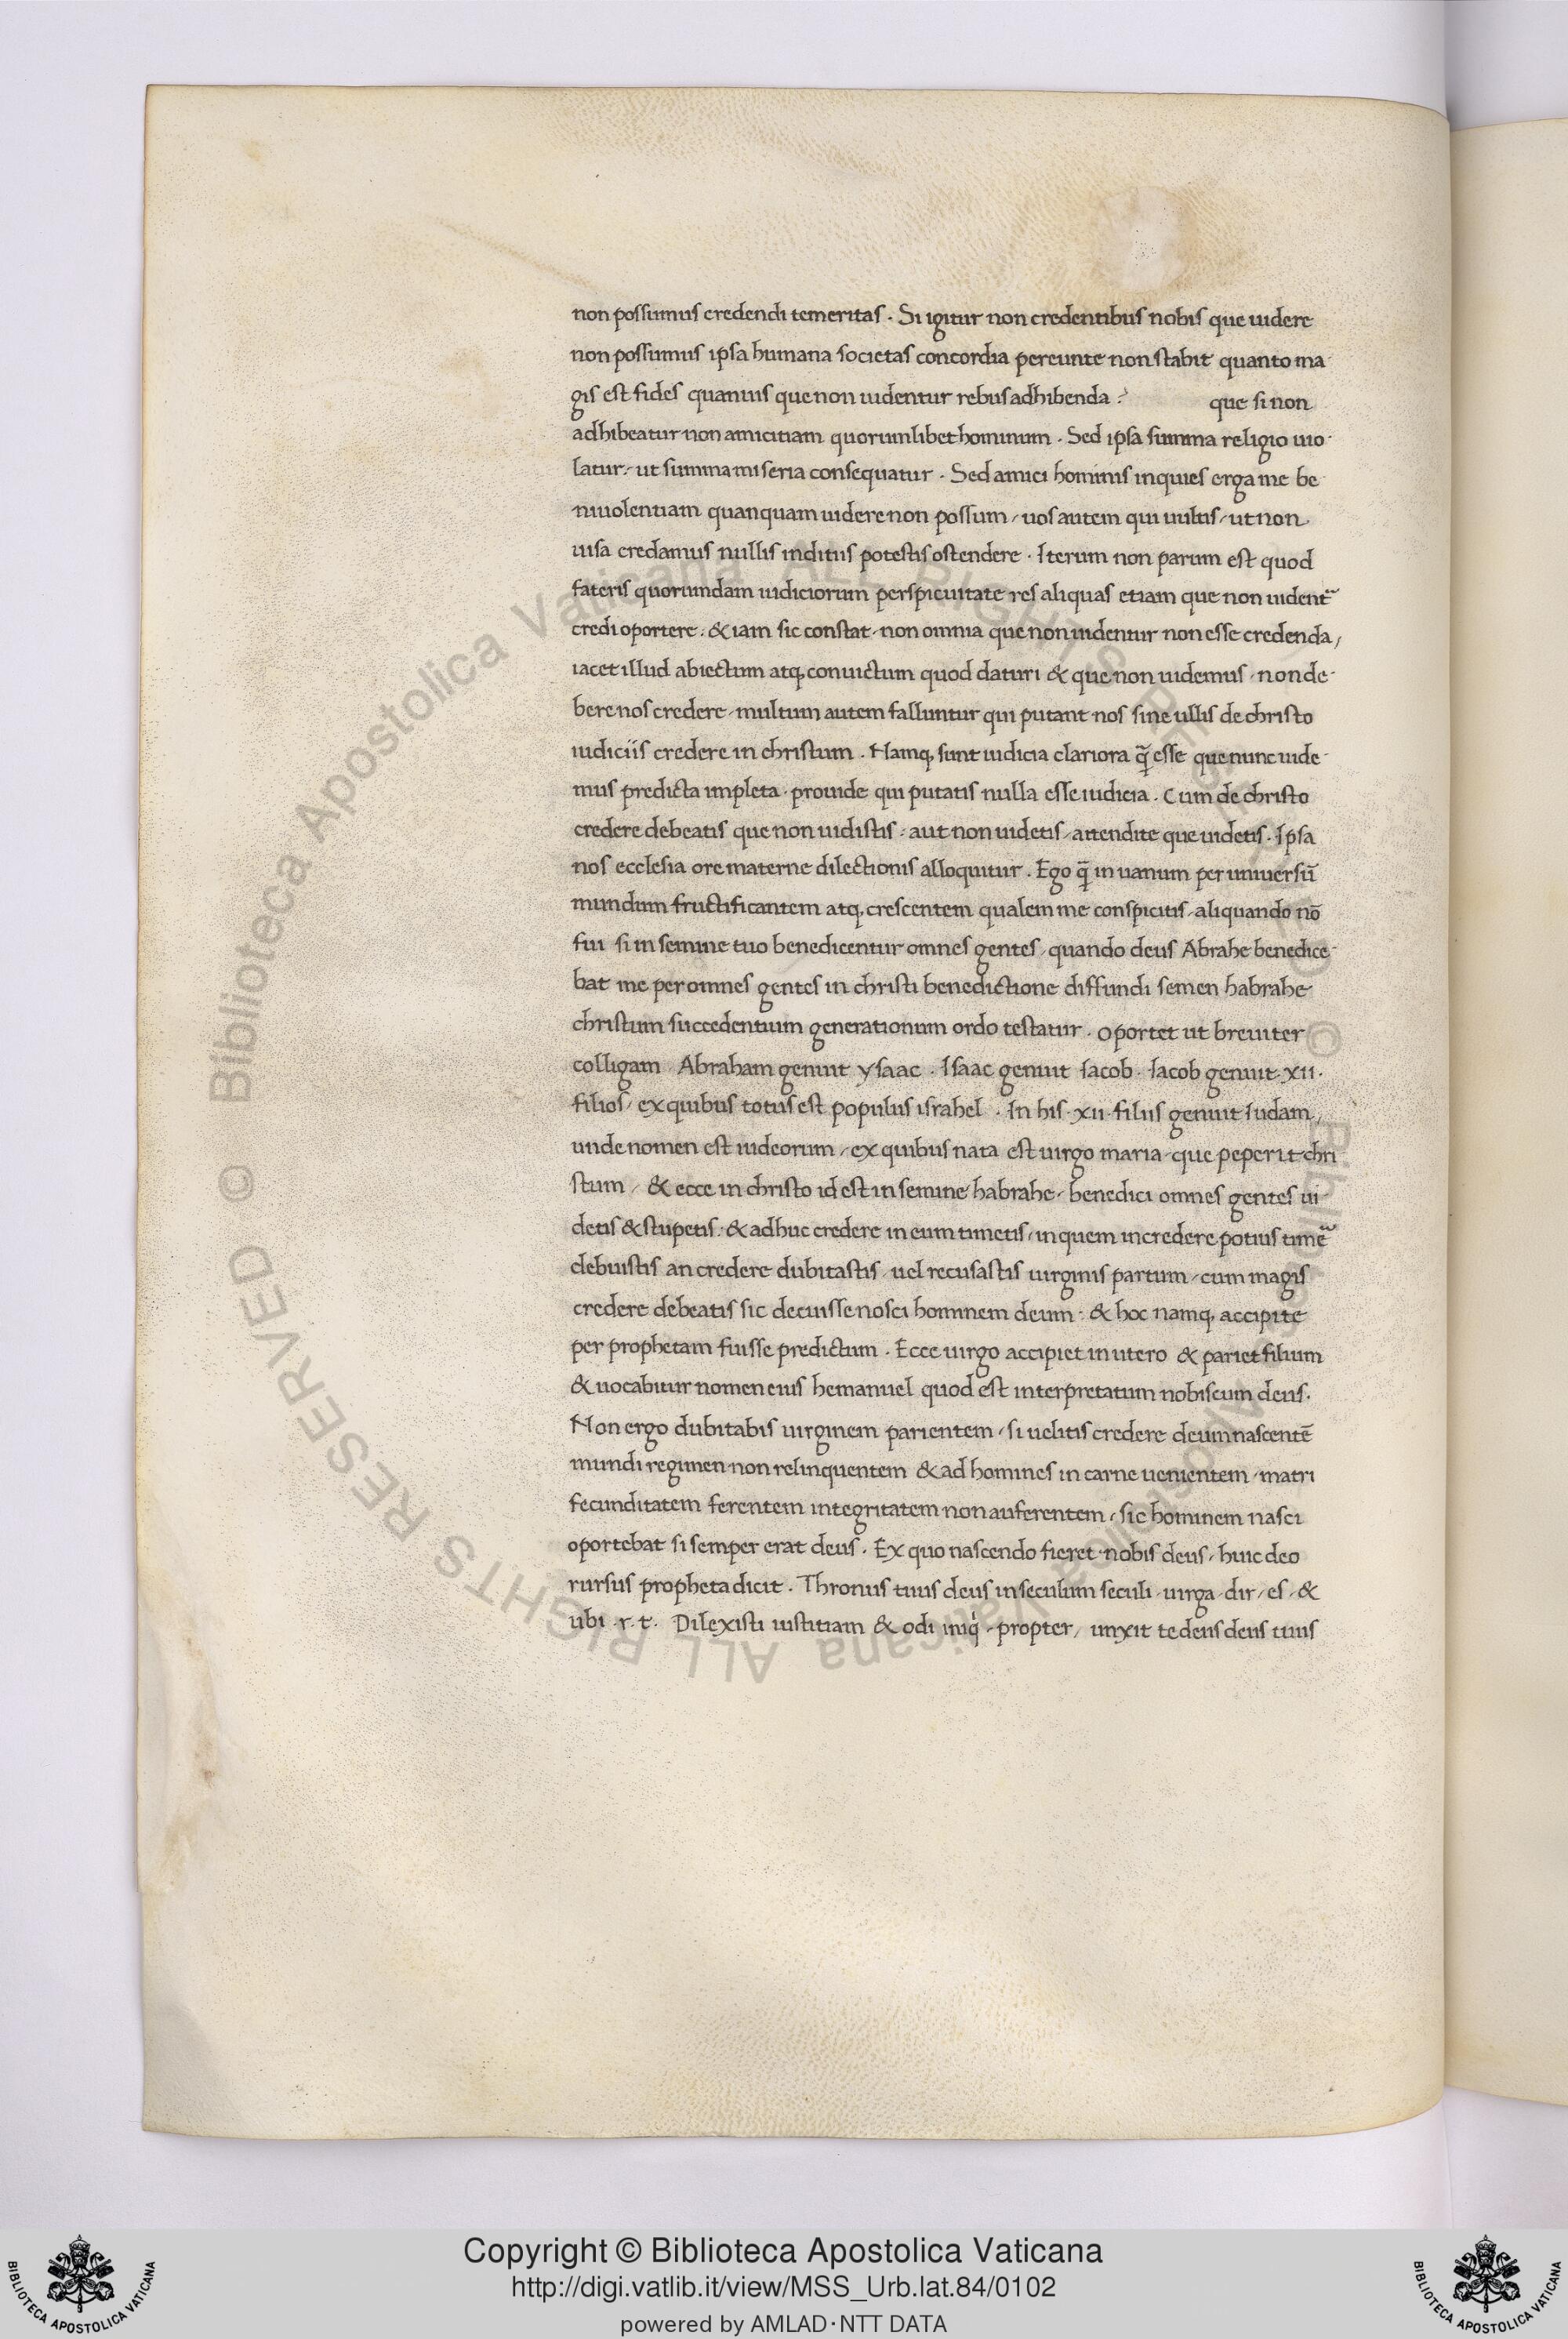 non possumus credendi temeritas . Si igitur non credentibus nobis que uidere
non possumus ipsa humana societas concordia pereunte non stabit quanto ma-
gis est fides quamuis que non uidentur rebus adhibenda ? que si non
adhibeatur non amicitiam quorumlibet hominum . Sed ipsa summa religio uio-
latur: ut summa miseria consequatur . Sed amici hominis inquies erga me be-
niuolentiam quanquam uidere non possum / uos autem qui uultis / ut non
uisa credamus nullis inditiis potestis ostendere . Iterum non parum est quod
fateris quorumdam iudiciorum perspicuitate res aliquas etiam que non uident~
credi oportere : & iam sic constat / non omnia que non uidentur non esse credenda /
iacet illud abiectum atq, conuictum quod daturi & que non uidemus / non de-
bere nos credere / multum autem falluntur qui putant nos sine ullis de christo
iudiciis credere in christum . Namq, sunt iudicia clariora q̄ esse que nunc uide-
mus predicta impleta . prouide qui putatis nulla esse iudicia . Cum de christo
credere debeatis que non uidistis : aut non uidetis / attendite que uidetis . Ipsa
nos ecclesia ore materne dilectionis alloquitur . Ego q̄ in uanum per uniuersū
mundum fructificantem atq, crescentem qualem me conspicitis / aliquando nō
fui si in semine tuo benedicentur omnes gentes / quando deus Abrahe benedice-
bat me per omnes gentes in christi benedictione diffundi semen habrahe
christum succedentium generationum ordo testatur . oportet ut breuiter
colligam Abraham genuit ysaac . Isaac genuit Iacob . Iacob genuit . xii .
filios / ex quibus totus est populus israhel . In his . xii . filiis genuit Iudam /
unde nomen est iudeorum / ex quibus nata est uirgo maria / que peperit chri
stum / & ecce in christo id est in semine habrahe / benedici omnes gentes ui-
detis & stupetis : & adhuc credere in eum timetis / in quem incredere potius time~
debuistis an credere dubitastis / uel recusastis uirginis partum / cum magis
credere debeatis sic decuisse nosci hominem deum : & hoc namq, accipite
per prophetam fuisse predictum . Ecce uirgo accipiet in utero & pariet filium
& uocabitur nomen eius hemanuel quod est interpretatum nobiscum deus .
Non ergo dubitabis uirginem parientem / si uelitis credere deum nascentē
mundi regimen non relinquentem & ad homines in carne uenientem / matri
fecunditatem ferentem integritatem non auferentem / sic hominem nasci
oportebat si semper erat deus . Ex quo nascendo fieret nobis deus / huic deo
rursus propheta dicit . Thronus tuus deus in seculum seculi / uirga / dir / es / &
ubi . r . t . Dilexisti iustitiam & odi iniq / propter / unxit te deus deus tuus
Copyright © Biblioteca Apostolica Vaticana
http://digi.vatlib.it/view/MSS_Urb.lat.84/0102
powered by AMLAD · NTT DATA
BIBLIOTECA APOSTOLICA VATICANA
BIBLIOTECA APOSTOLICA VATICANA
© Biblioteca Apostolica Vaticana ALL RIGHTS RESERVED © Biblioteca Apostolica Vaticana ALL RIGHTS RESERVED